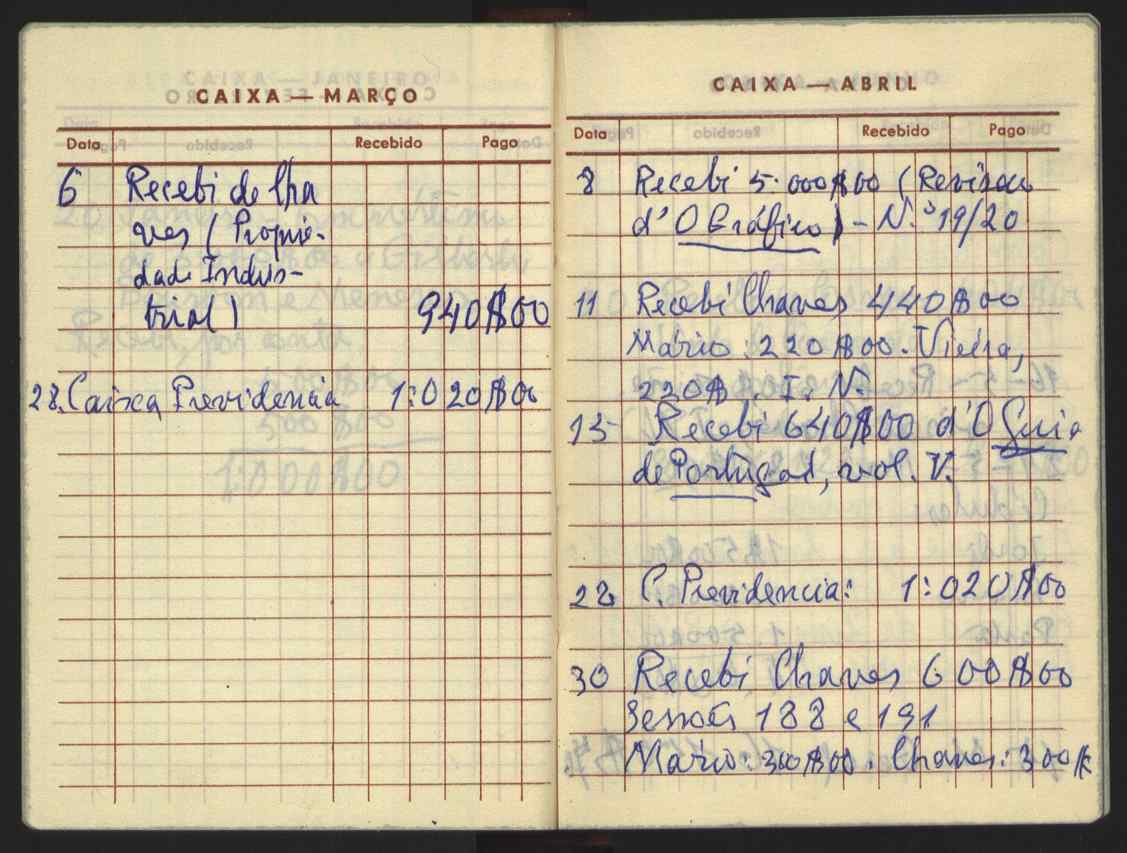 CAIXA — MARÇO
Data Recebido Pago
6 Recebi de Cha
ves (Proprie-
dade Indus-
trial) 940$00
28. Caixa Previdencia 1:020$00
CAIXA — ABRIL
Data Recebido Pago
8 Recebi 5.000$00 (Revisão
d'O Gráfico) - N.º 19/20
11 Recebi Chaves 440$00
Mário: 220$00. Vieira,
220$. I. N.
15 Recebi 640$00 d'O Guia
de Portugal, vol. V.
28 C. Previdencia: 1:020$00
30 Recebi Chaves 600$00
Sessões 188 e 191
Mário: 300$00. Chaves: 300$